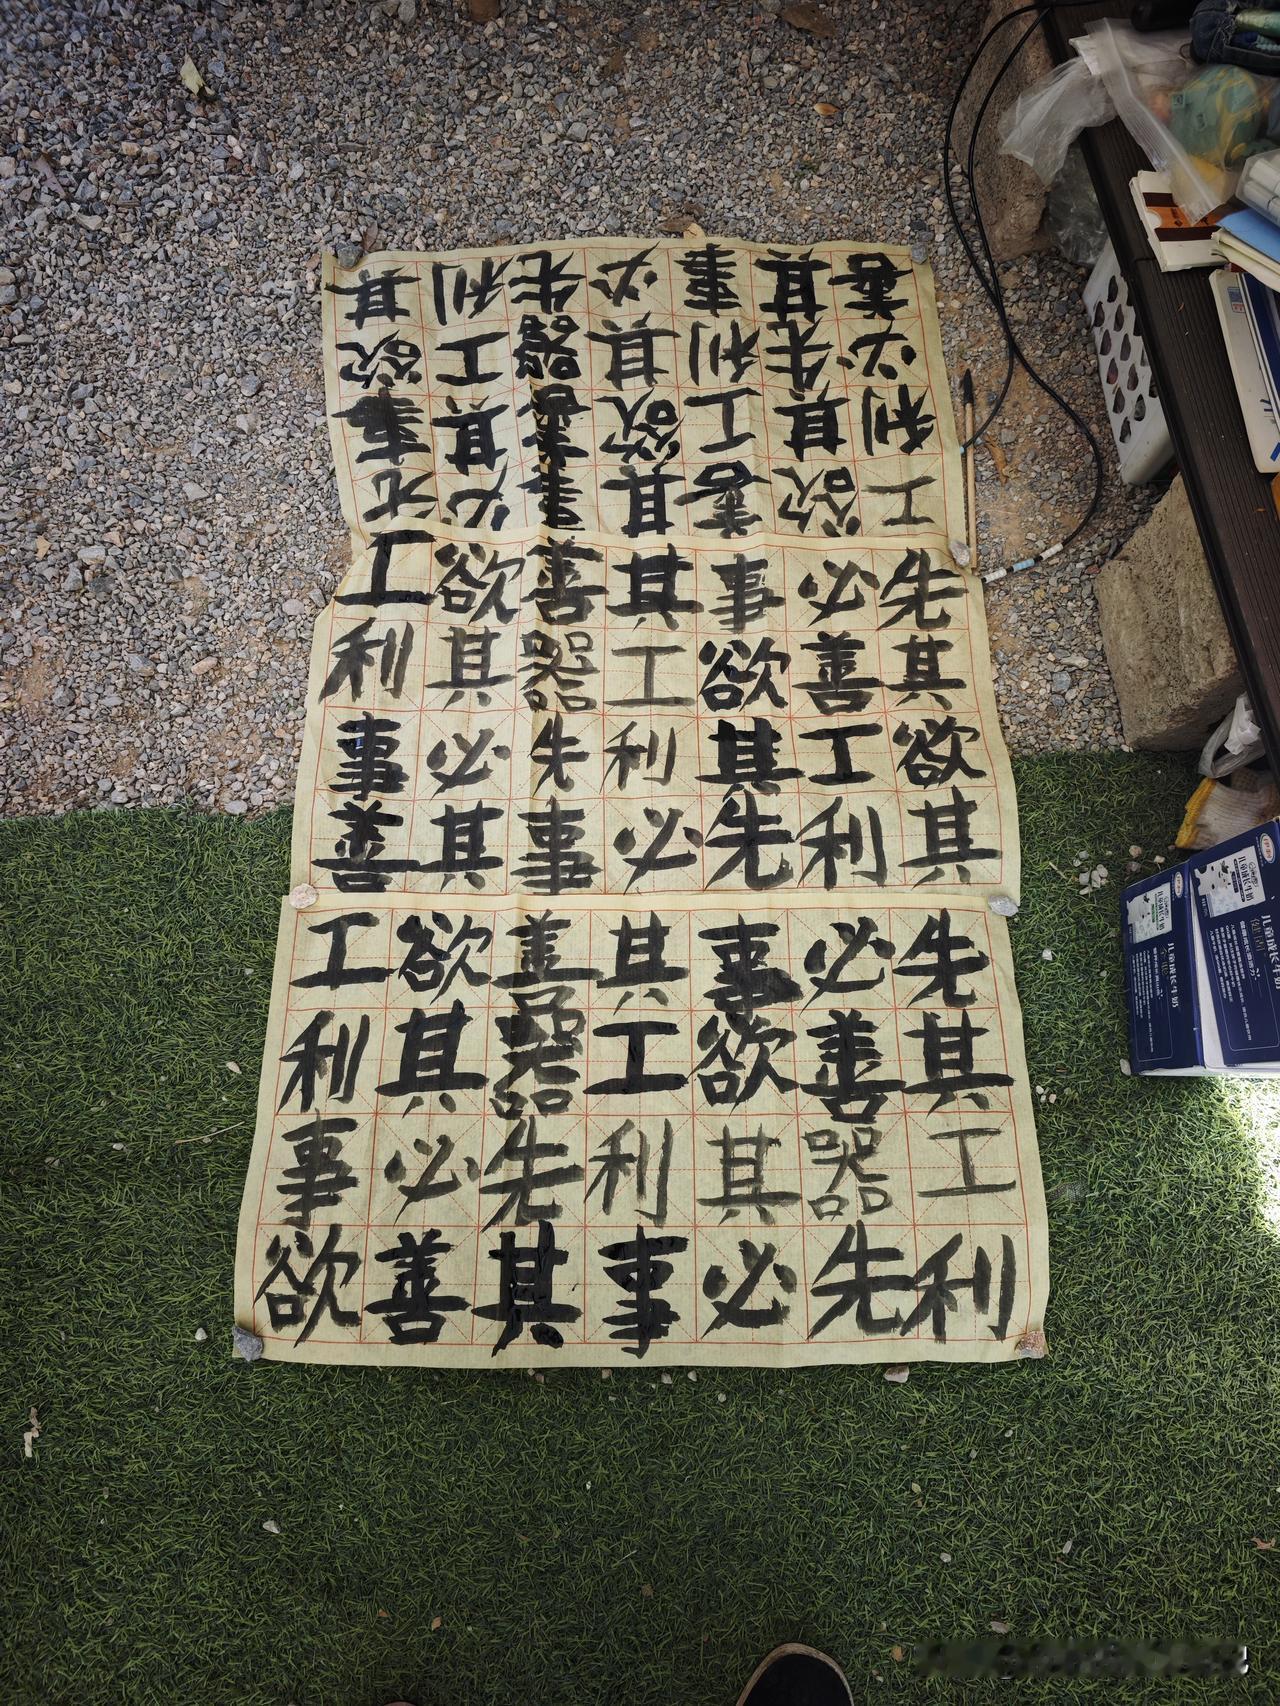 工欲善其事必先
利其工欲善其事
必先利其器工欲
善其事必先利其
工欲善其事必先
利其器工欲善其
事必先利其工欲
善其事必先利其
工欲善其事必先
利其器工欲善其
事必先利其器工
欲善其事必先利
儿童成长牛奶
儿童成长牛奶